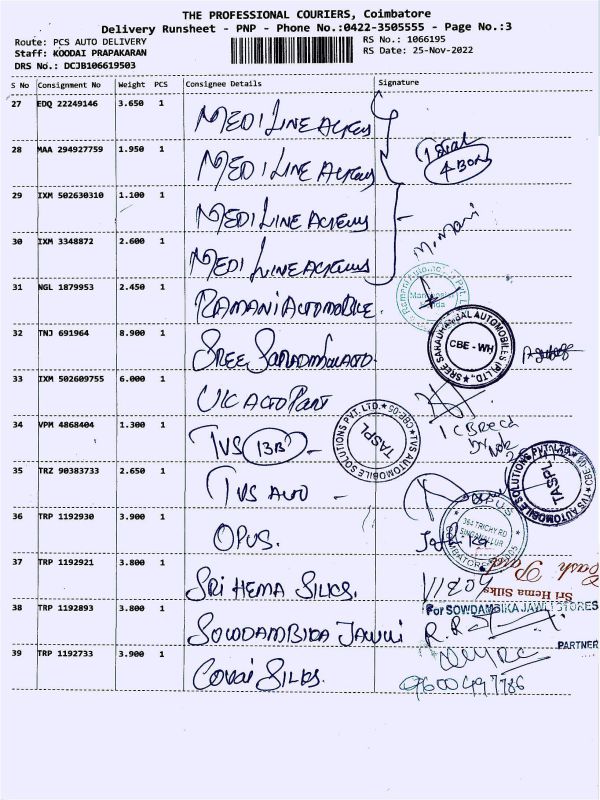 THE PROFESSIONAL COURIERS, Coimbatore
Delivery Runsheet - PNP - Phone No.:0422-3505555 - Page No.:3
Route: PCS AUTO DELIVERY
RS No.: 1066195
Staff: KOODAI PRAPAKARAN
RS Date: 25-Nov-2022
DRS No.: DCJB106619503
S No Consignment No Weight PCS Consignee Details Signature
27 EDQ 22249146 3.650 1
MEDI LINE
28 MAA 294927759 1.950 1
MEDI LINE
4 BOX
29 IXM 502630310 1.100 1
MEDI LINE
M. Mani
30 IXM 3348872 2.600 1
MEDI LINE
31 NGL 1879953 2.450 1
RAMANI AUTOMOBILE.
32 TNJ 691964 8.900 1
SREE
SREE SARADHAMBAL AUTOMOBILES (P) LTD.,
CBE - WH
33 IXM 502609755 6.000 1
AUTO PART
34 VPM 4868404 1.300 1
TVS 13B -
TVS AUTOMOBILE SOLUTIONS PVT. LTD. CBE-05
TASPL
35 TRZ 90383733 2.650 1
TVS AUTO -
TVS AUTOMOBILE SOLUTIONS PVT. LTD. CBE-05
TASPL
36 TRP 1192930 3.900 1
OPUS.
OPUS
364 TRICHY RD
SINGANALLUR
COIMBATORE
37 TRP 1192921 3.800 1
SRI HEMA SILKS.
Cash Paid
Sri Hema Silks
38 TRP 1192893 3.800 1
SOWDAMBIKA JAWULI
For SOWDAMBIKA JAWLI STORES
PARTNER
39 TRP 1192733 3.900 1
Covai SILKS.
9600497786